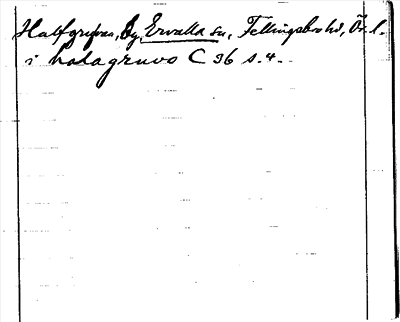 Halfgruvan, by, Ervalla sn, Fellingsbro hd, Ör. l.
i halagruvo C 36 s. 4.